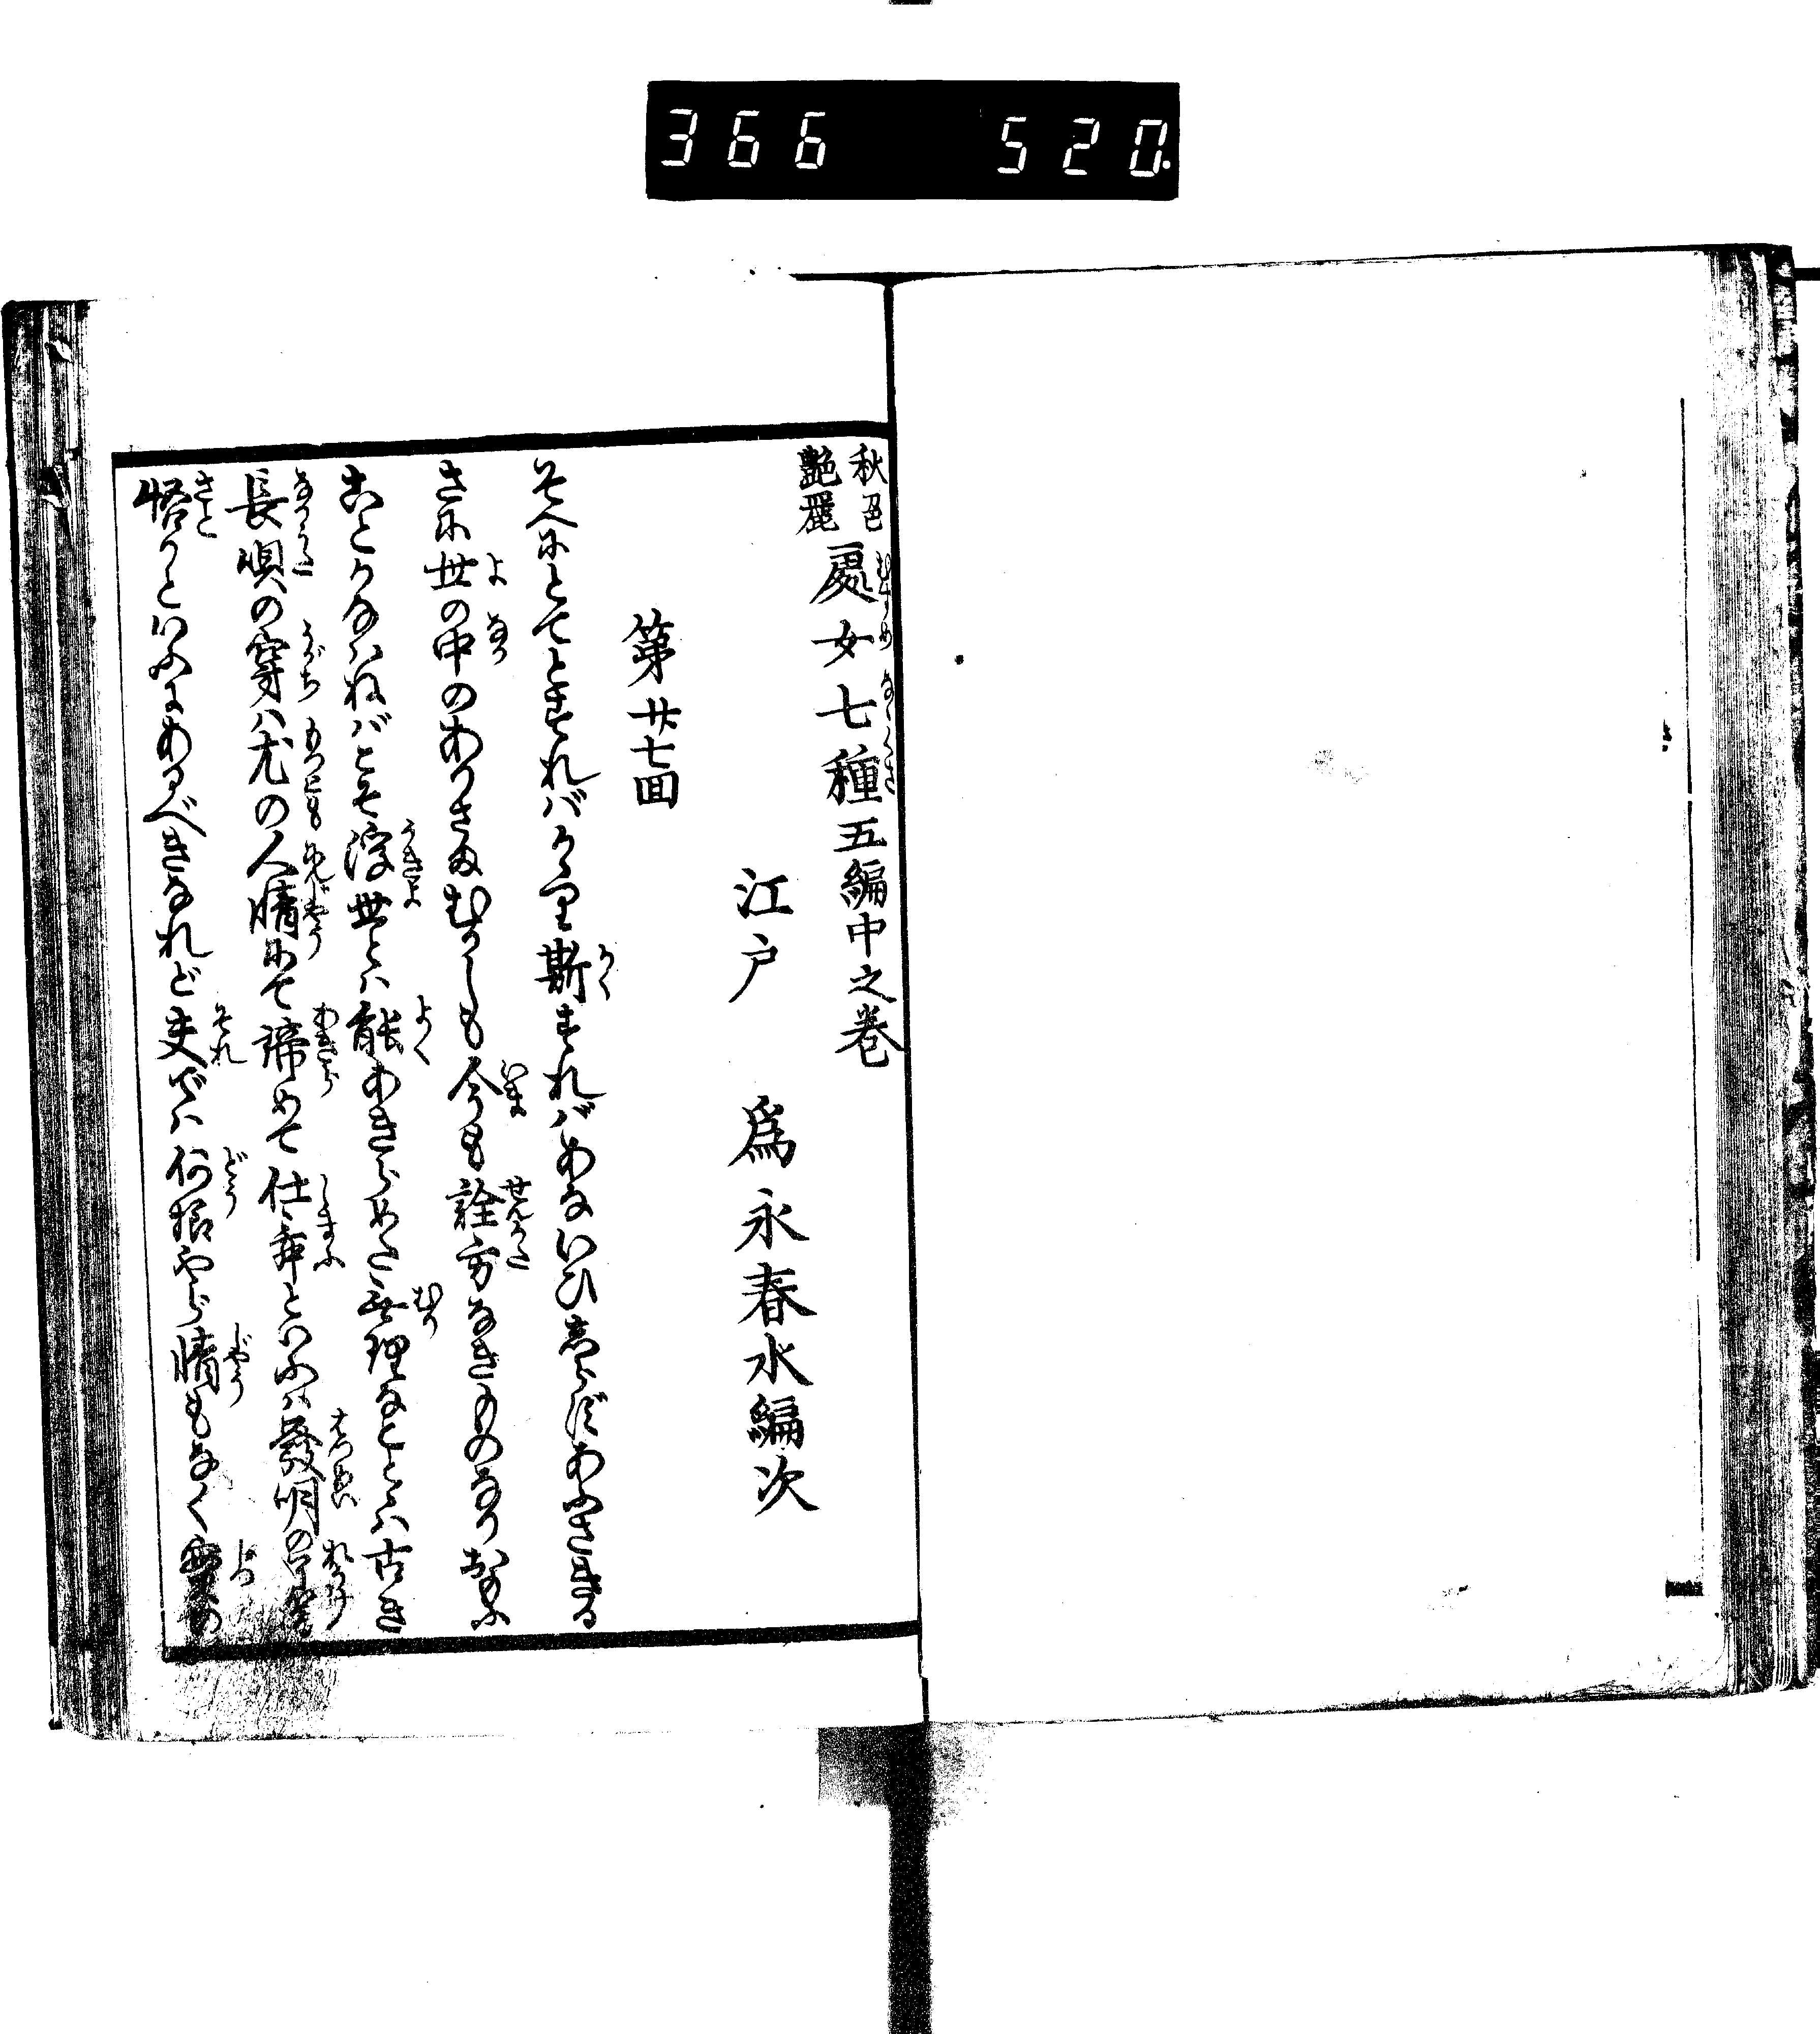 366 520.
秋色
艶麗
處女七種五編中之巻
江戸 爲永春水編次
第廿七回
そへにとてとすればかゝり斯すればあないひしらずあふさきる
さに世の中のありさまむかしも今も詮方なきものなりおもふ
ことかなはねばこそ浮世とは能あきらめた無理なことは古き
長唄の穿ハ尤の人情にて諦めて仕舞といふハ發明の
悟りといふにあるべきなれど夫でハ何様やら情もなく